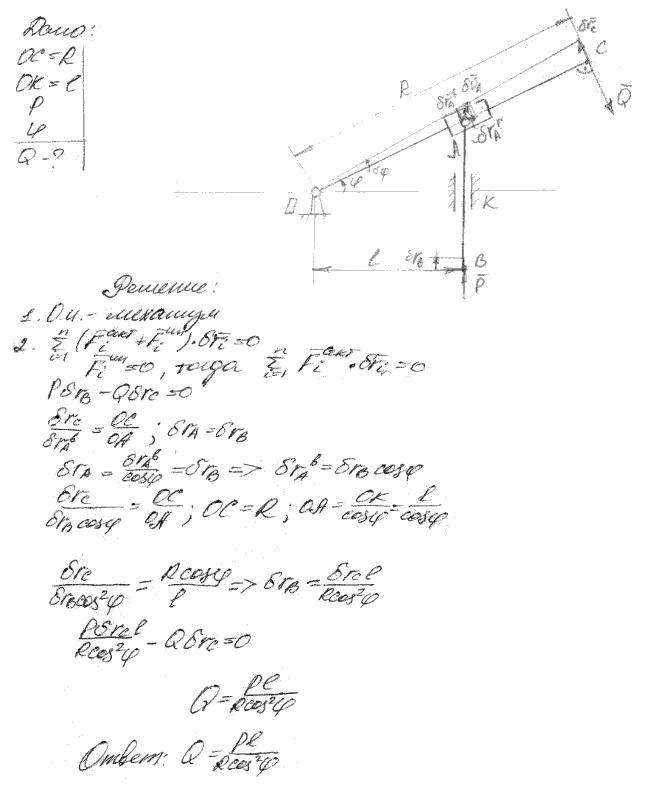 Дано:
OC = R
OK = l
P
φ
Q - ?
R
δr̄c
C
Q̄
δr̄Aᵇ δr̄A
δr̄Aʳ
A
δφ
φ
O
K
l
δrB
B
P̄
Решение:
1. О.и. - механизм
2. ∑ⁿᵢ₌₁ (F̄ᵢᵃᵏᵗ + F̄ᵢᵘⁿ) · δr̄ᵢ = 0
F̄ᵢᵘⁿ = 0, тогда ∑ⁿᵢ₌₁ F̄ᵢᵃᵏᵗ · δr̄ᵢ = 0
PδrB - Qδrc = 0
δrc/δrAᵇ = OC/OA ; δrA = δrB
δrA = δrAᵇ/cosφ = δrB => δrAᵇ = δrB cosφ
δrc/δrB cosφ = OC/OA ; OC = R ; OA = OK/cosφ = l/cosφ
δrc/δrB cos²φ = R cosφ/l => δrB = δrc l/R cos²φ
Pδrc l/R cos²φ - Qδrc = 0
Q = Pl/R cos²φ
Ответ: Q = Pl/R cos²φ